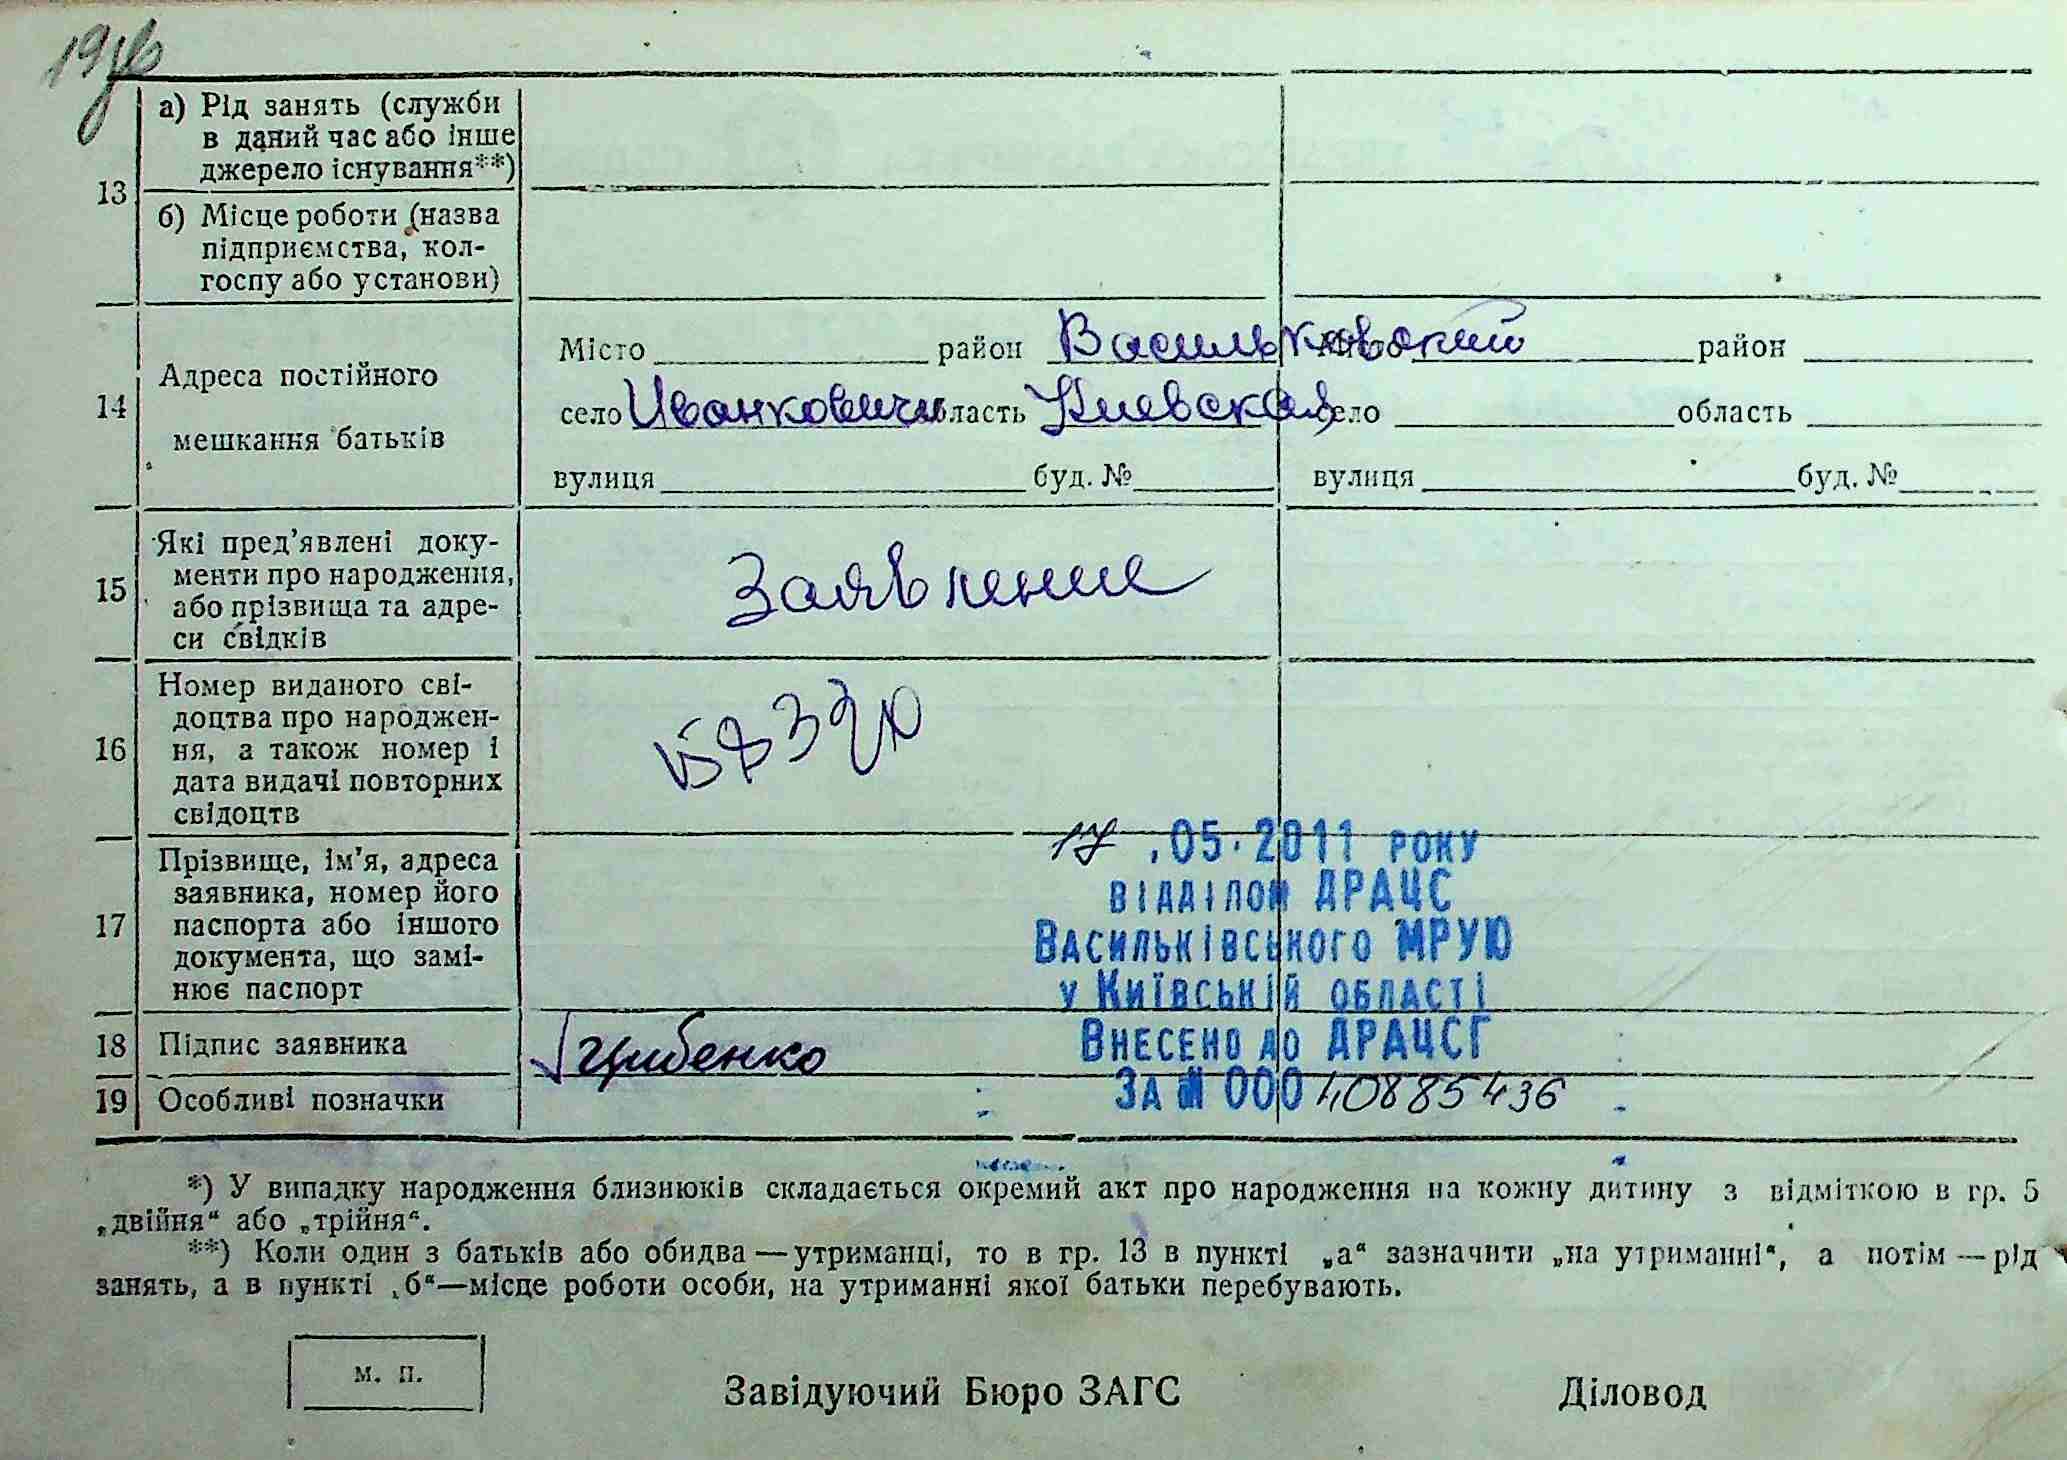 а) Рід занять (служби
в даний час або інше
джерело існування**)
13
б) Місце роботи (назва
підприємства, кол-
госпу або установи)
14
Адреса постійного
мешкання батьків
Місто район Васильковский Місто район
село Иванковичи область Киевская село область
вулиця буд. № вулиця буд. №
15
Які пред’явлені доку-
менти про народження,
або прізвища та адре-
си свідків
Заявление
16
Номер виданого сві-
доцтва про народжен-
ня, а також номер і
дата видачі повторних
свідоцтв
17
Прізвище, ім’я, адреса
заявника, номер його
паспорта або іншого
документа, що замі-
нює паспорт
17.05.2011 РОКУ
ВІДДІЛОМ ДРАЦС
ВАСИЛЬКІВСЬКОГО МРУЮ
У КИЇВСЬКІЙ ОБЛАСТІ
ВНЕСЕНО ДО ДРАЦСГ
ЗА № 00040885436
18 Підпис заявника Грибенко
19 Особливі позначки
*) У випадку народження близнюків складається окремий акт про народження на кожну дитину з відміткою в гр. 5
„двійня“ або „трійня“.
**) Коли один з батьків або обидва — утриманці, то в гр. 13 в пункті „а“ зазначити „на утриманні“, а потім — рід
занять, а в пункті „б“—місце роботи особи, на утриманні якої батьки перебувають.
м. п.
Завідуючий Бюро ЗАГС Діловод